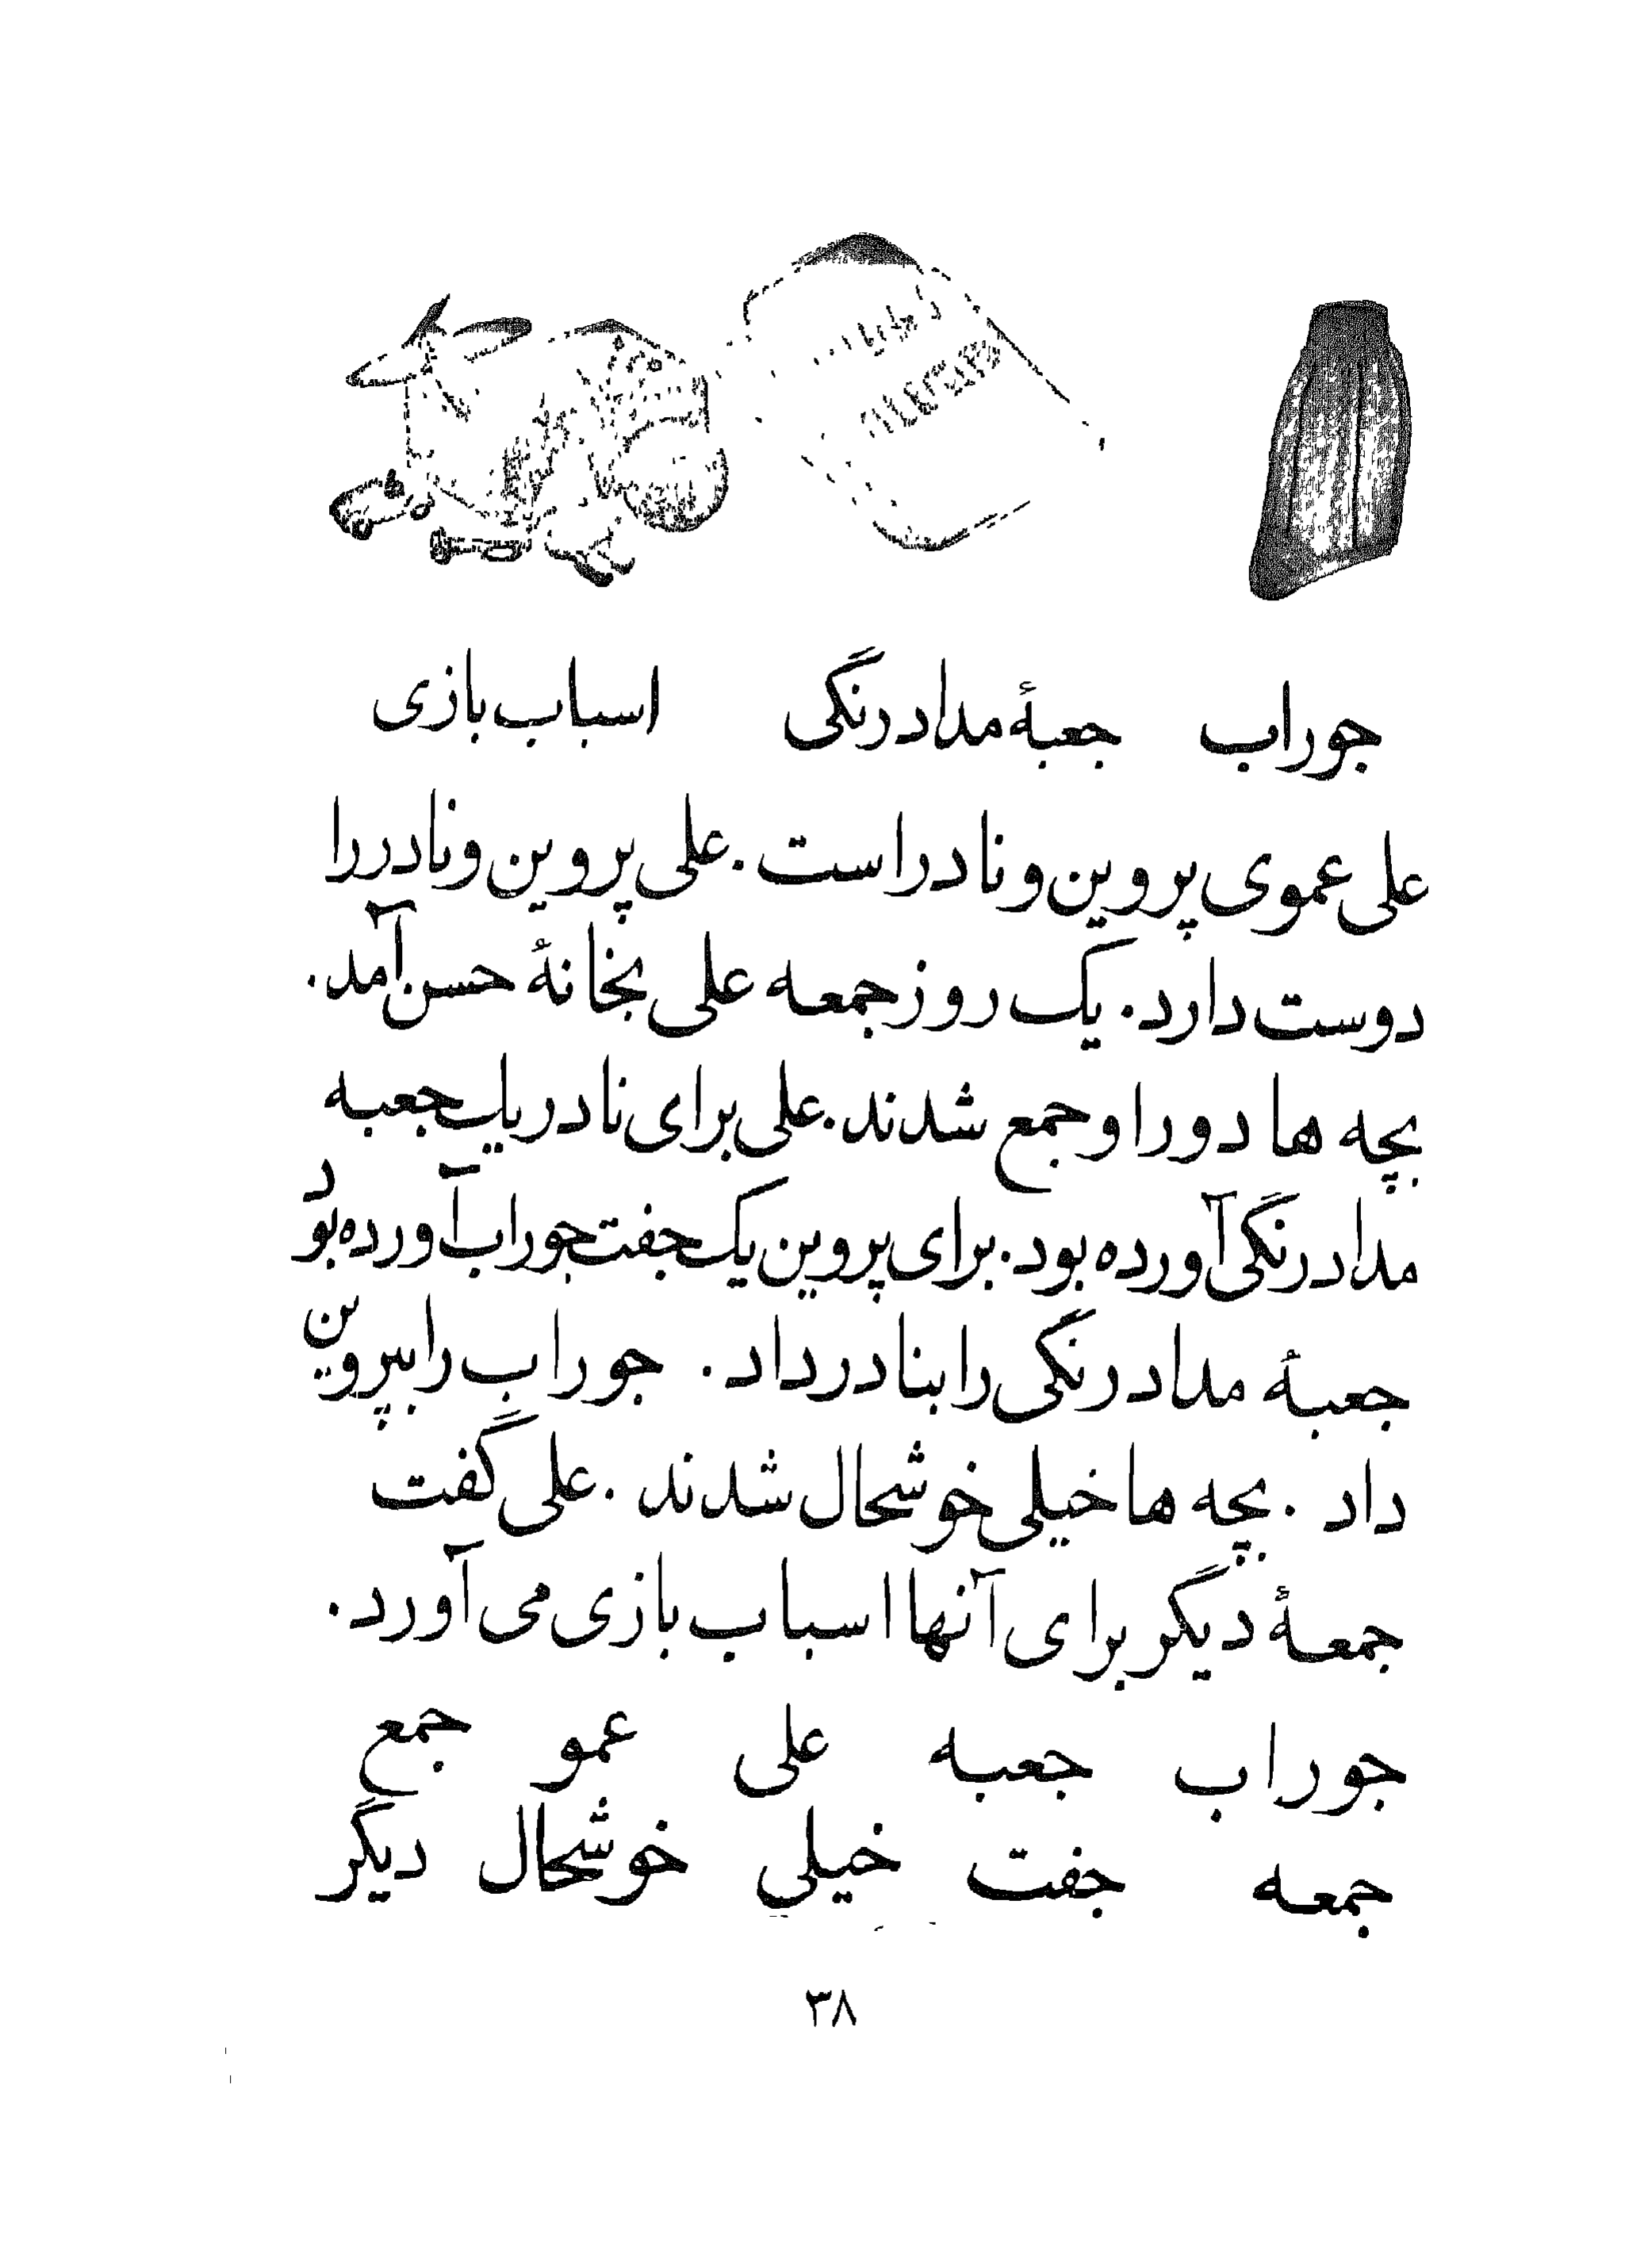 جوراب جعبهٔ مداد رنگی اسباب بازی
علی عموی پروین و نادر است. علی پروین و نادر را
دوست دارد. یک روز جمعه علی بخانهٔ حسن آمد.
بچه ها دور او جمع شدند. علی برای نادر یک جعبه
مداد رنگی آورده بود. برای پروین یک جفت جوراب آورده بود
جعبهٔ مداد رنگی را بنادر داد. جوراب را بپروین
داد. بچه ها خیلی خوشحال شدند. علی گفت
جمعهٔ دیگر برای آنها اسباب بازی می آورد.
جوراب جعبه علی عمو جمع
جمعه جفت خیلی خوشحال دیگر
۳۸